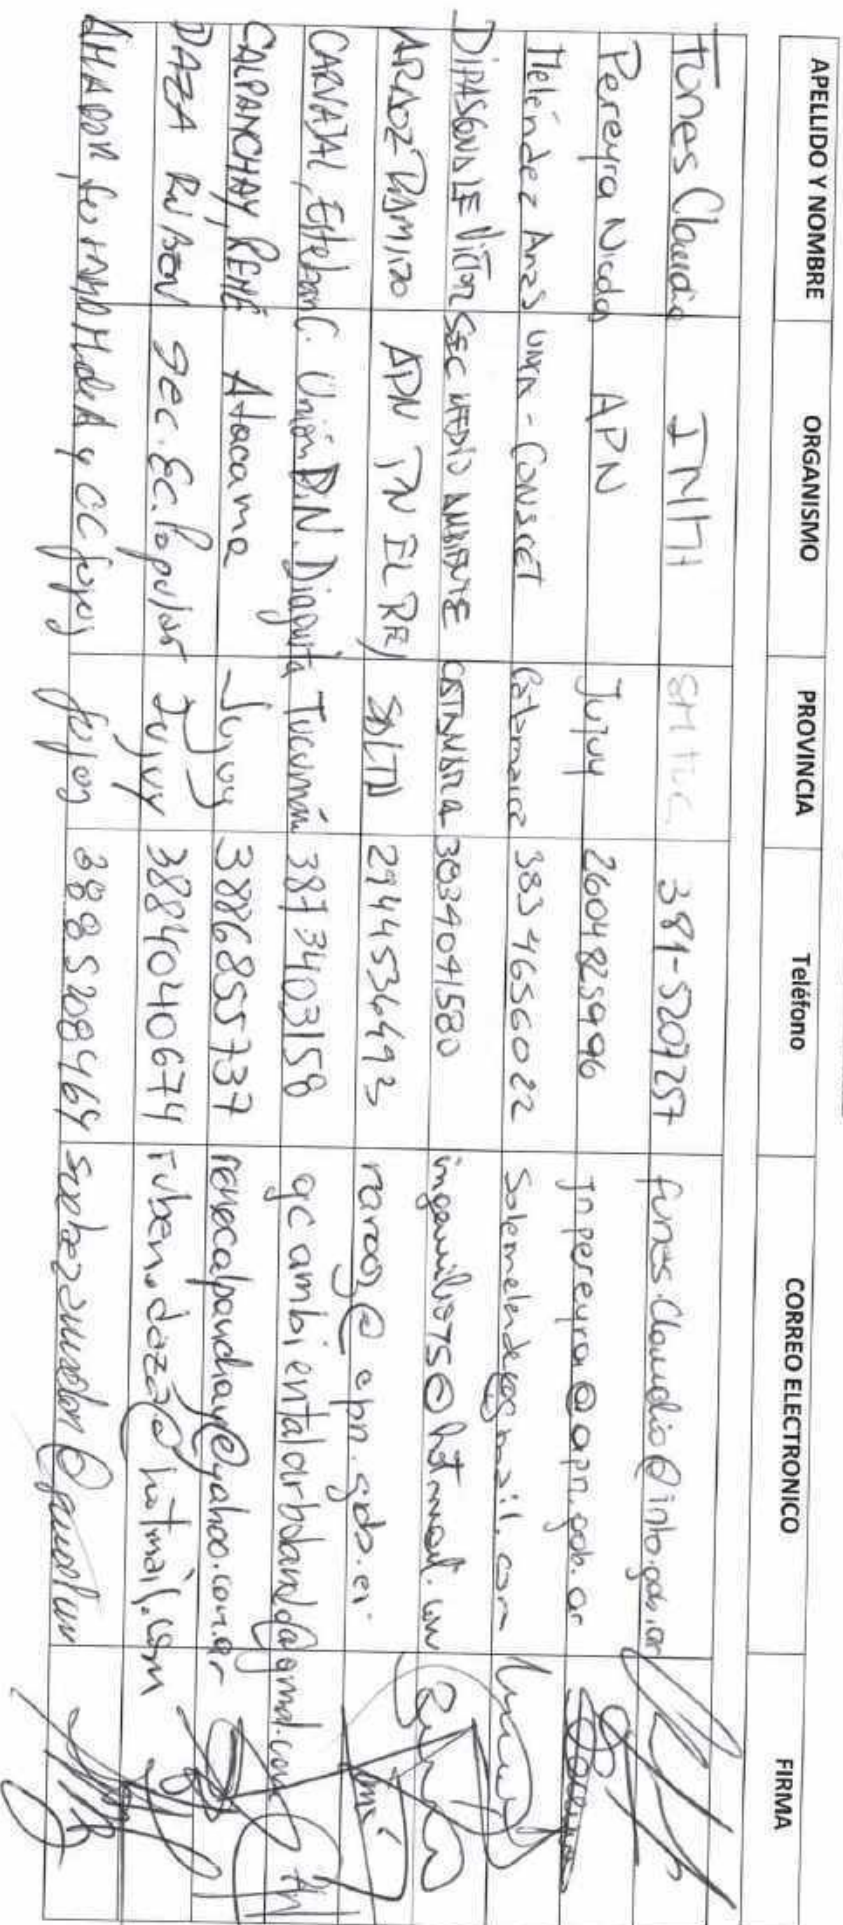 APELLIDO Y NOMBRE ORGANISMO PROVINCIA Teléfono CORREO ELECTRONICO FIRMA
Funes Claudio 381-5207257 funes.claudio@inta.gob.ar
Pereyra Nicolas APN Jujuy 2604825996 jnpereyra@apn.gob.ar
Meléndez Anas UNCA - CONICET Catamarca 3834656022
DIPASQUALE Victor SEC MEDIO AMBIENTE CATAMARCA
ARAOZ RAMIRO APN PN EL REY SALTA 2944536493 raraoz@apn.gob.ar
CARVAJAL, Esteban C. Unión P.N. Diaguita Tucumán 3873403158
CALPANCHAY, RENÉ Atacama Jujuy 3886855737 renecalpanchay@yahoo.com.ar
DAZA RUBEN Sec. Ec. Popular Jujuy 3884040674 ruben.daza@hotmail.com
AMADOR, M de A y CC Jujuy Jujuy 3885208469